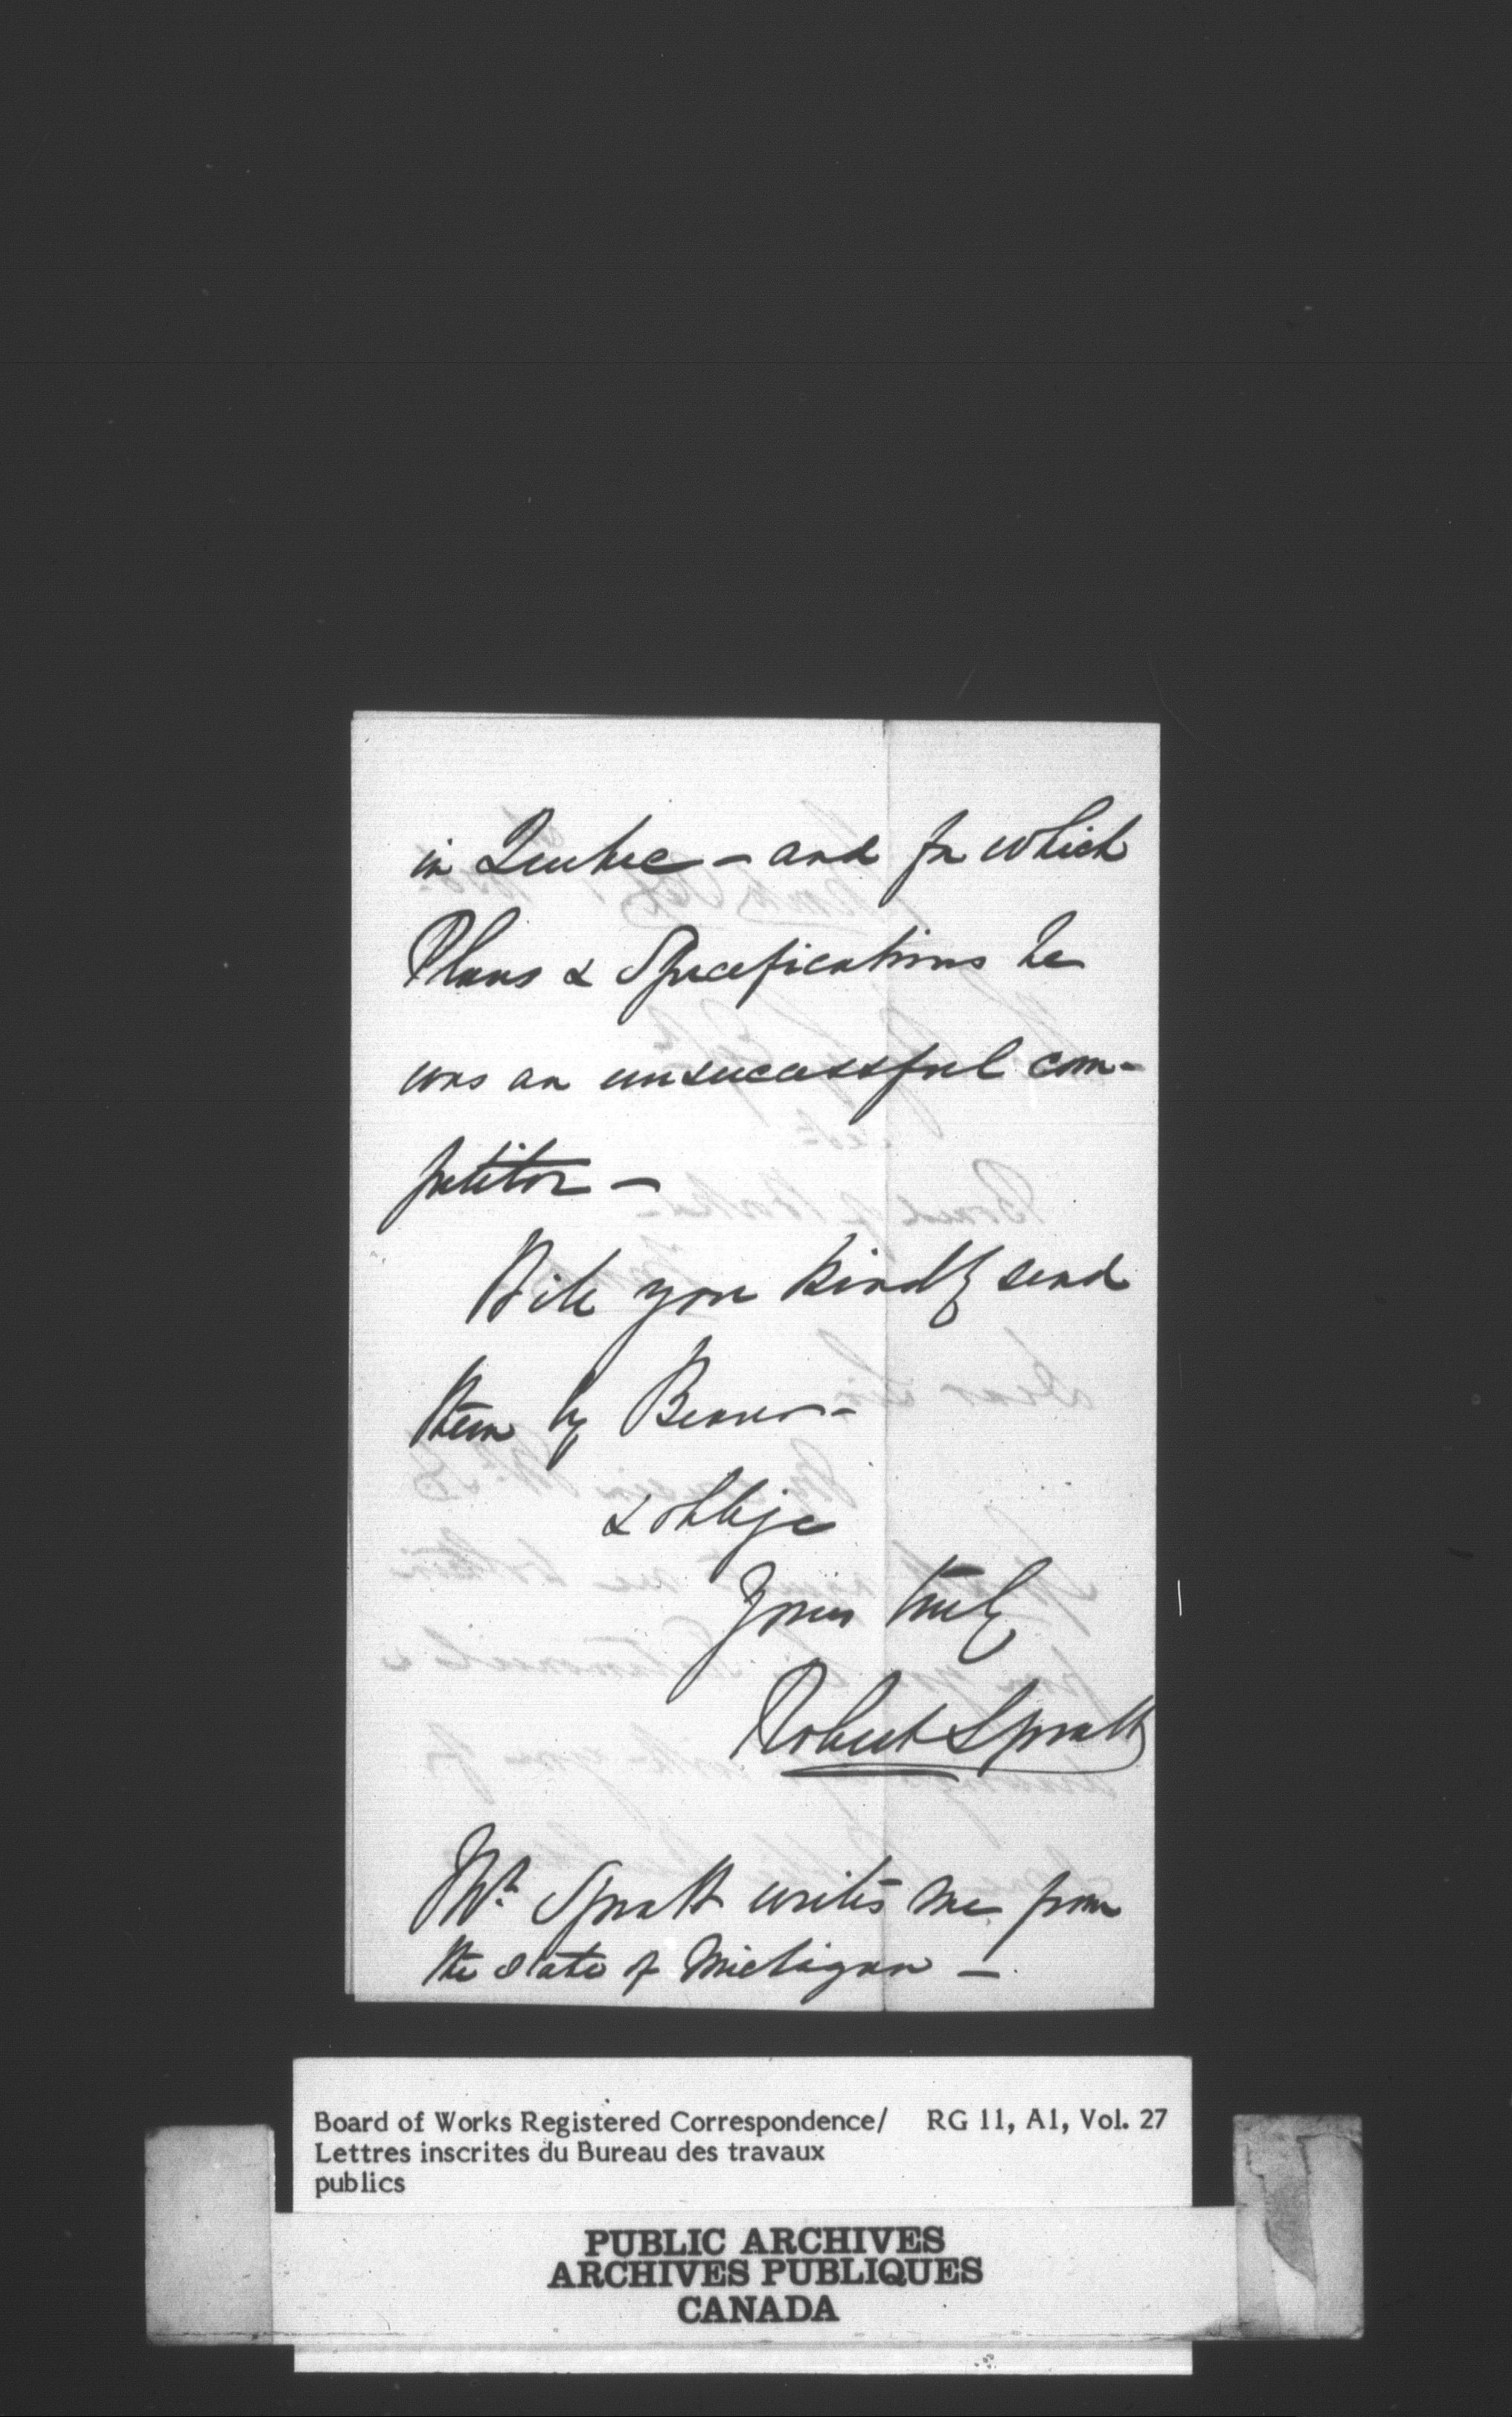 in Quebec – and for which
Plans & Specifications he
was an unsuccessful com-
petitor –
Will you kindly send
them by Bearer –
& oblige
Yours truly
Robert Spratt
Mr. Spratt writes me from
the State of Michigan –
Board of Works Registered Correspondence/ RG 11, A1, Vol. 27
Lettres inscrites du Bureau des travaux
publics
PUBLIC ARCHIVES
ARCHIVES PUBLIQUES
CANADA